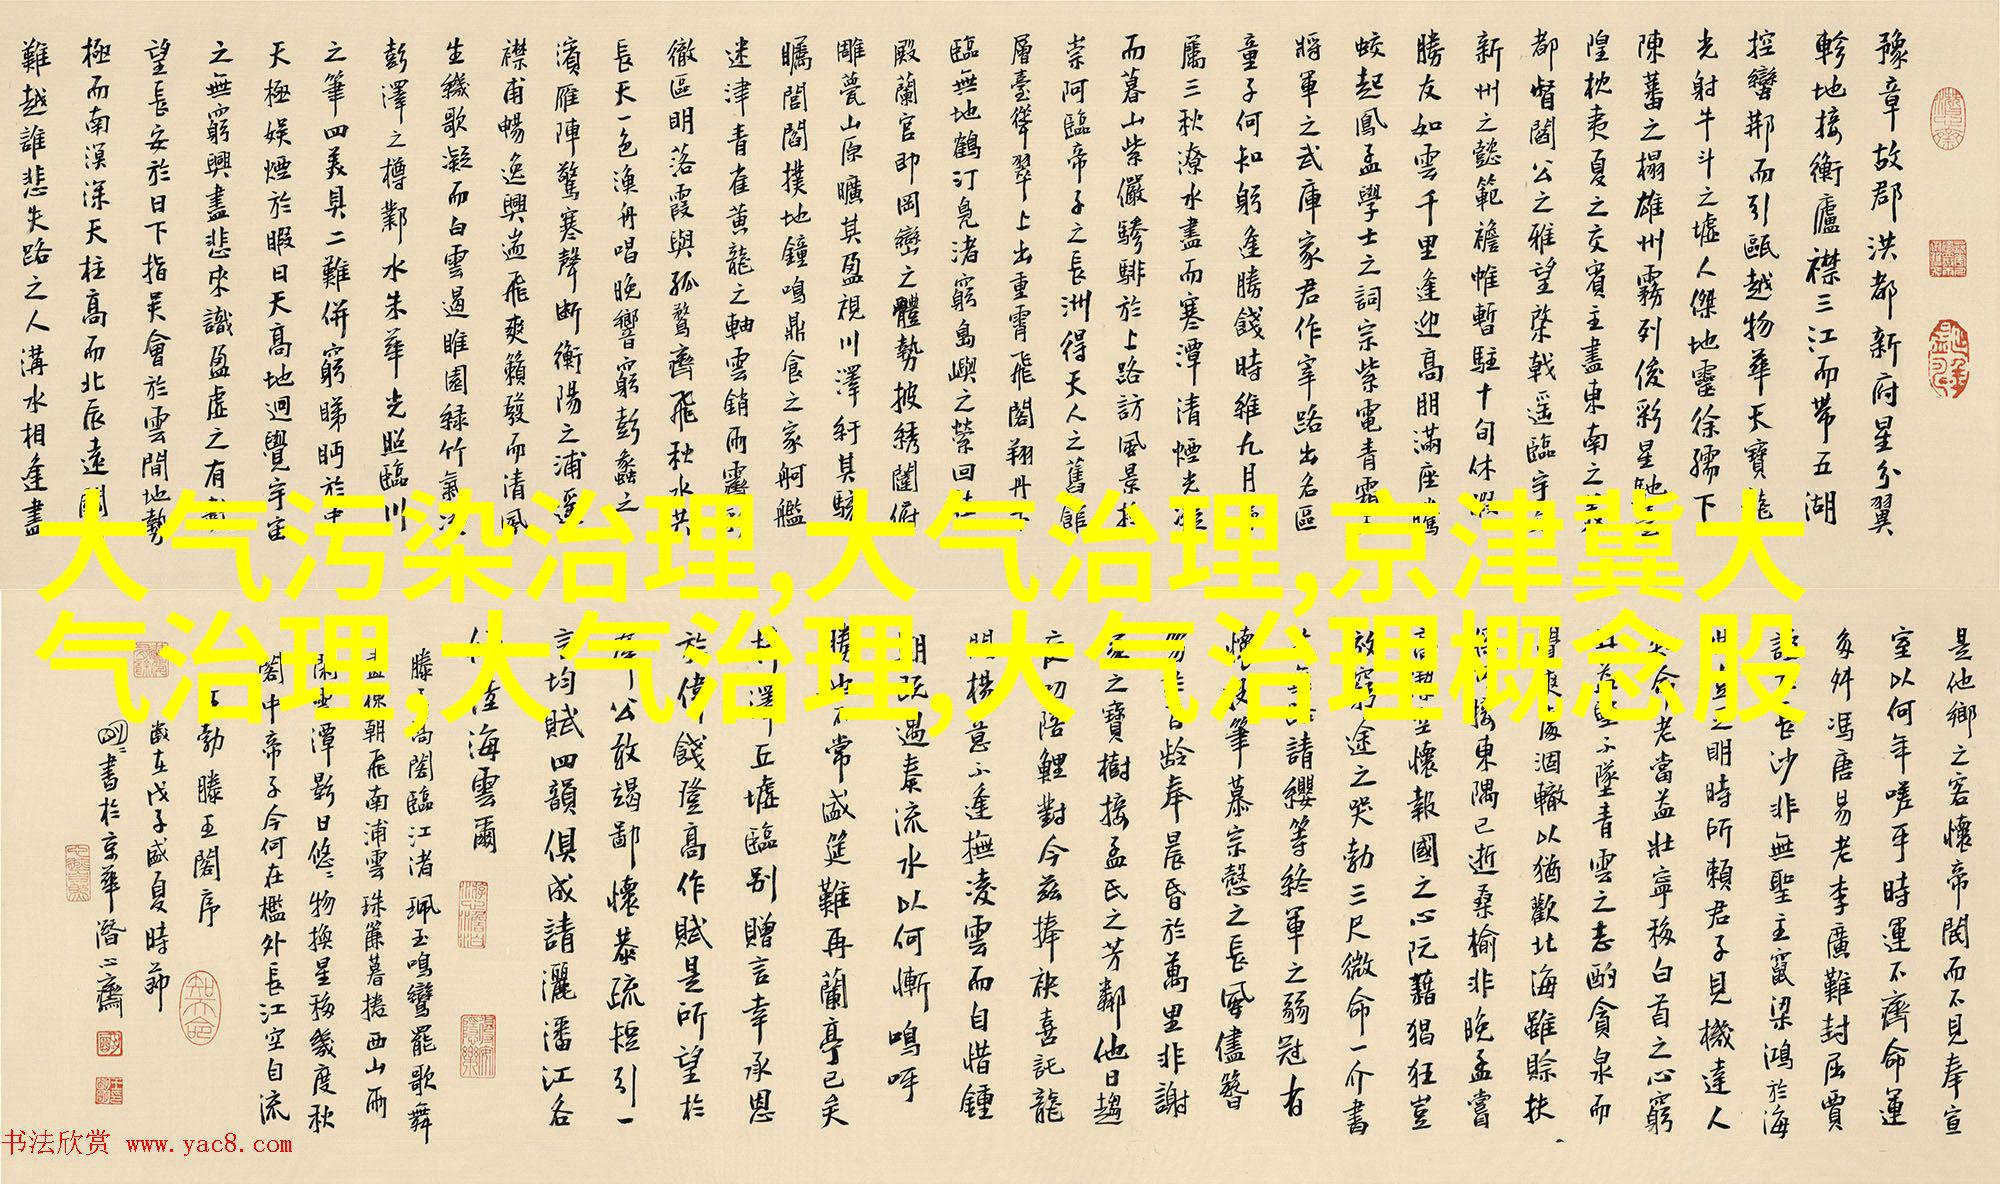 豫章故郡洪都新府星分翼
軫地接衡廬襟三江而帶五湖
控蠻荊而引甌越物華天寶龍
光射牛斗之墟人傑地靈徐孺下
陳蕃之榻雄州霧列俊彩星馳
隍枕夷夏之交賓主盡東南之美
都督閻公之雅望棨戟遥臨宇文
新州之懿範襜帷暫駐十旬休暇
勝友如雲千里逢迎高朋滿座騰
蛟起鳳孟學士之詞宗紫電青霜
將軍之武庫家君作宰路出名區
童子何知躬逢勝餞時維九月序
屬三秋潦水盡而寒潭清煙光凝
而暮山紫儼驂騑於上路訪風景於
崇阿臨帝子之長洲得天人之舊館
層臺聳翠上出重霄飛閣翔丹下
臨無地鶴汀鳧渚窮島嶼之縈回桂
殿蘭宫即岡巒之體勢披綉闥俯
雕甍山原曠其盈視川澤紆其駭
矚閭閻撲地鐘鳴鼎食之家舸艦
迷津青雀黃龍之軸雲銷雨霽彩
徹區明落霞與孤鶩齊飛秋水共
長天一色漁舟唱晚響窮彭蠡之
濱雁陣驚寒聲斷衡陽之浦遥
襟甫暢逸興遄飛爽籟發而清風
生纖歌凝而白雲遏睢園綠竹氣凌
彭澤之樽鄴水朱華光照臨川
之筆四美具二難併窮睇眄於中
天極娛煙於暇日天高地迥覺宇宙
之無窮興盡悲來識盈虛之有數
望長安於日下指吴會於雲間地勢
極而南溟深天柱高而北辰遠關
難越誰悲失路之人溝水相逢盡
大气污染治理,大气治理,京津冀大
气治理,大气治理,大气治理概念股
是他鄉之客懷帝閽而不見奉宣
室以何年嗟乎時運不齊命運
多舛馮唐易老李廣難封屈賈
誼於長沙非無聖主竄梁鴻於海
曲豈乏明時所賴君子見機達人
知命老當益壯寧移白首之心窮
且益堅不墜青雲之志酌貪泉而
覺爽處涸轍以猶歡北海雖賒扶
可接東隅已逝桑榆非晚孟嘗
高潔空懷報國之心阮藉猖狂豈
效窮途之哭勃三尺微命一介書
無路請纓等終軍之弱冠有
懷投筆慕宗慤之長風儘簪
笏於百齡奉晨昏於萬里非謝
家之寶樹接孟氏之芳鄰他日趨
叨陪鯉對今兹捧袂喜託龍
門楊意不逢撫凌雲而自惜鍾
期既遇奏流水以何慚嗚呼
勝地不常盛筵難再蘭亭已矣
梓澤丘墟臨别贈言幸承恩
於偉餞登高作賦是所望於
羣公敢竭鄙懷恭疏短引一
言均賦四韻俱成請灑潘江各
傾陸海雲爾
滕王高閣臨江渚珮玉鳴鸞罷歌舞
畫棟朝飛南浦雲珠簾暮捲西山雨
閑雲潭影日悠悠物換星移幾度秋
閣中帝子今何在檻外長江空自流
王勃滕王閣序
歲在戊子盛夏時節
書於京華潛心齋
书法欣赏 www.yac8.com